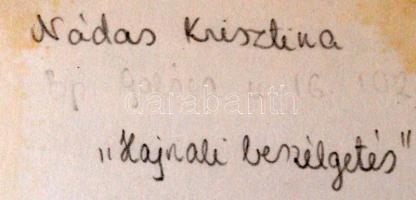 Nádas Krisztina
Bp
darabanth
"Hajnali beszélgetés"